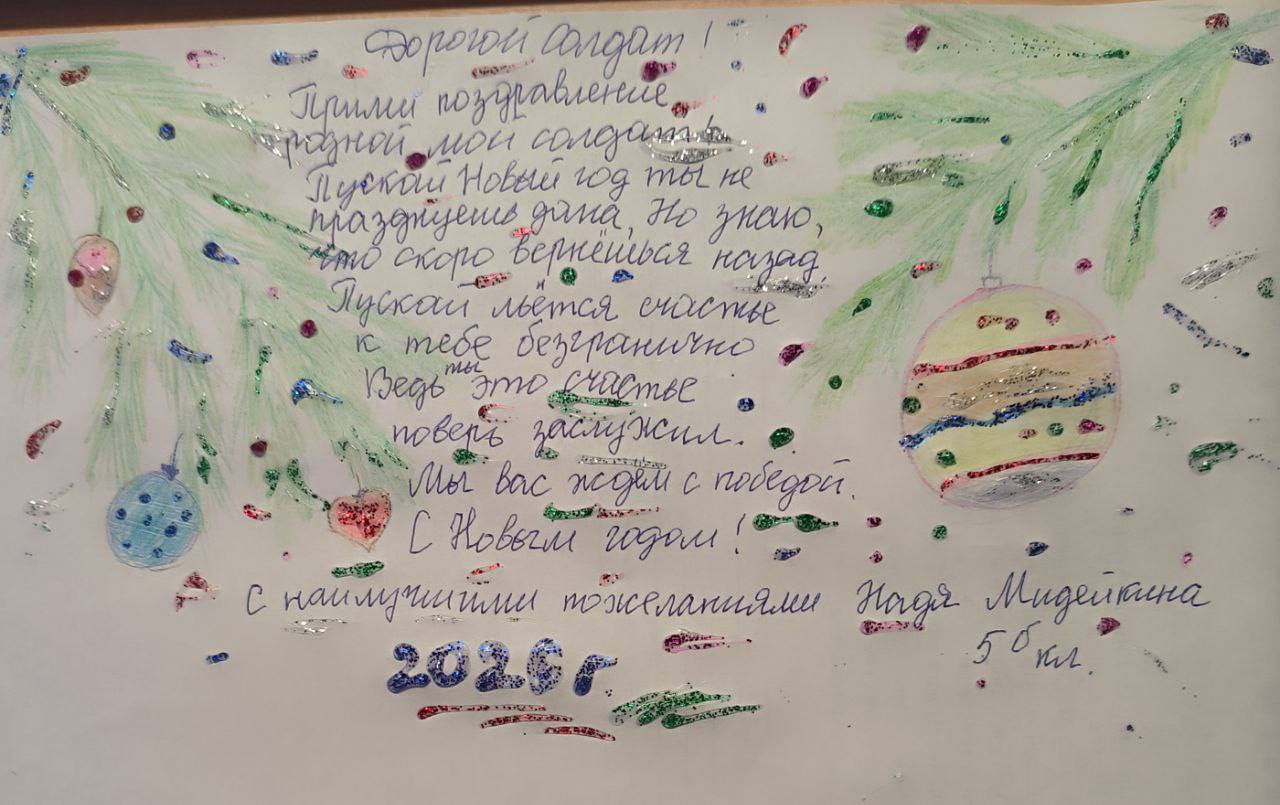 Дорогой солдат!
Прими поздравление
родной мой солдат!
Пускай Новый год ты не
празднуешь дома, Но знаю,
что скоро вернёшься назад.
Пускай льётся счастье
к тебе безгранично
Ведь ты это счастье
поверь заслужил.
Мы вас ждём с победой.
С Новым годом!
С наилучшими пожеланиями Надя Мидейкина
5 б кл.
2026 г